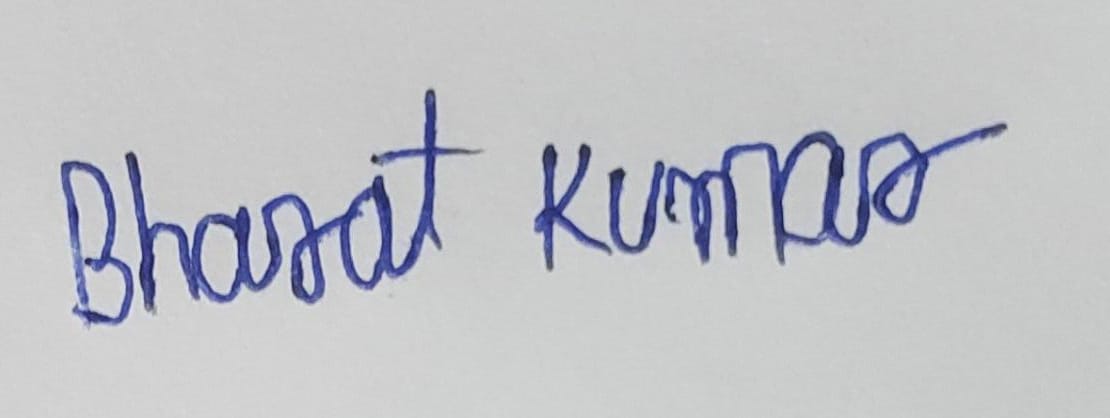 Bharat Kumar